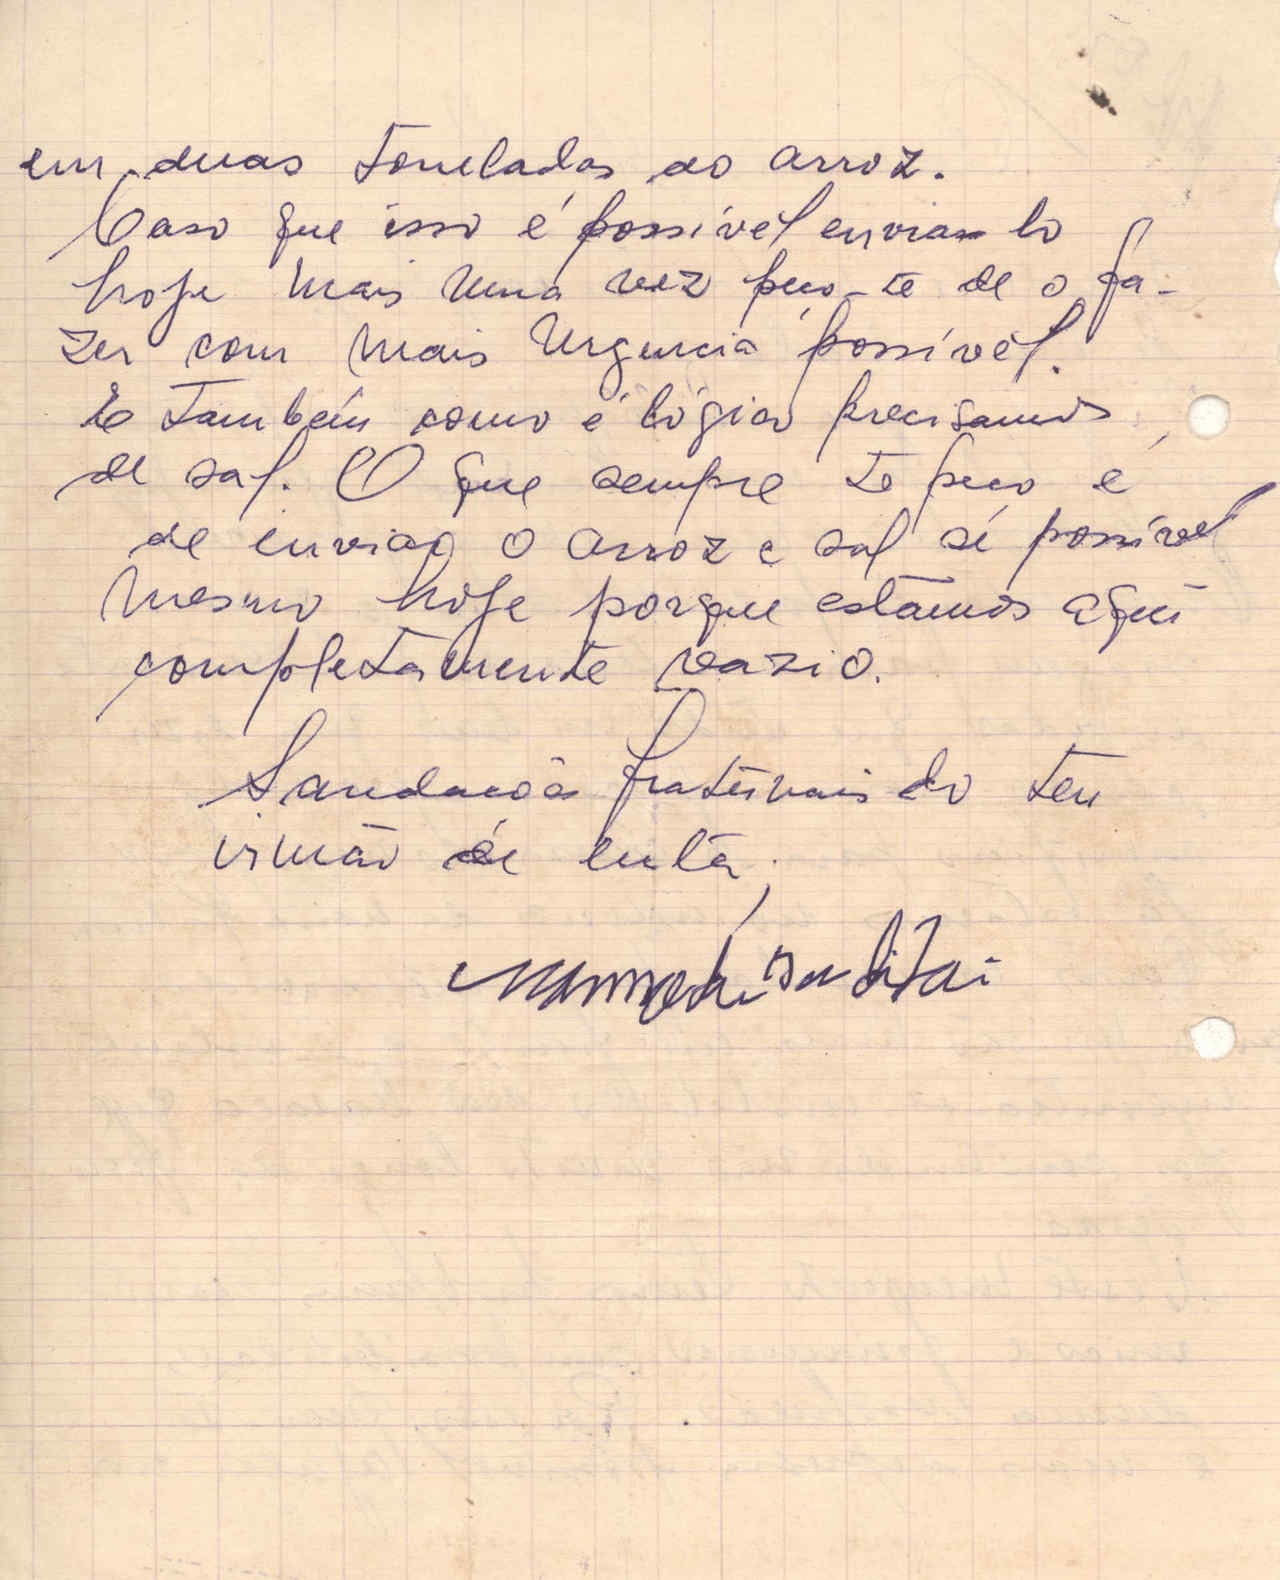 em duas toneladas do arroz.
Caso que isso é possível envia-lo
hoje mais uma vez peço-te de o fa-
zer com mais urgencia possível.
E também como é lógico precisamos
de sal. O que sempre te peço é
de enviar o arroz e sal sé possível
mesmo hoje porque estamos aqui
completamente vazio.
Saudacoês fraternais do teu
irmão de luta,